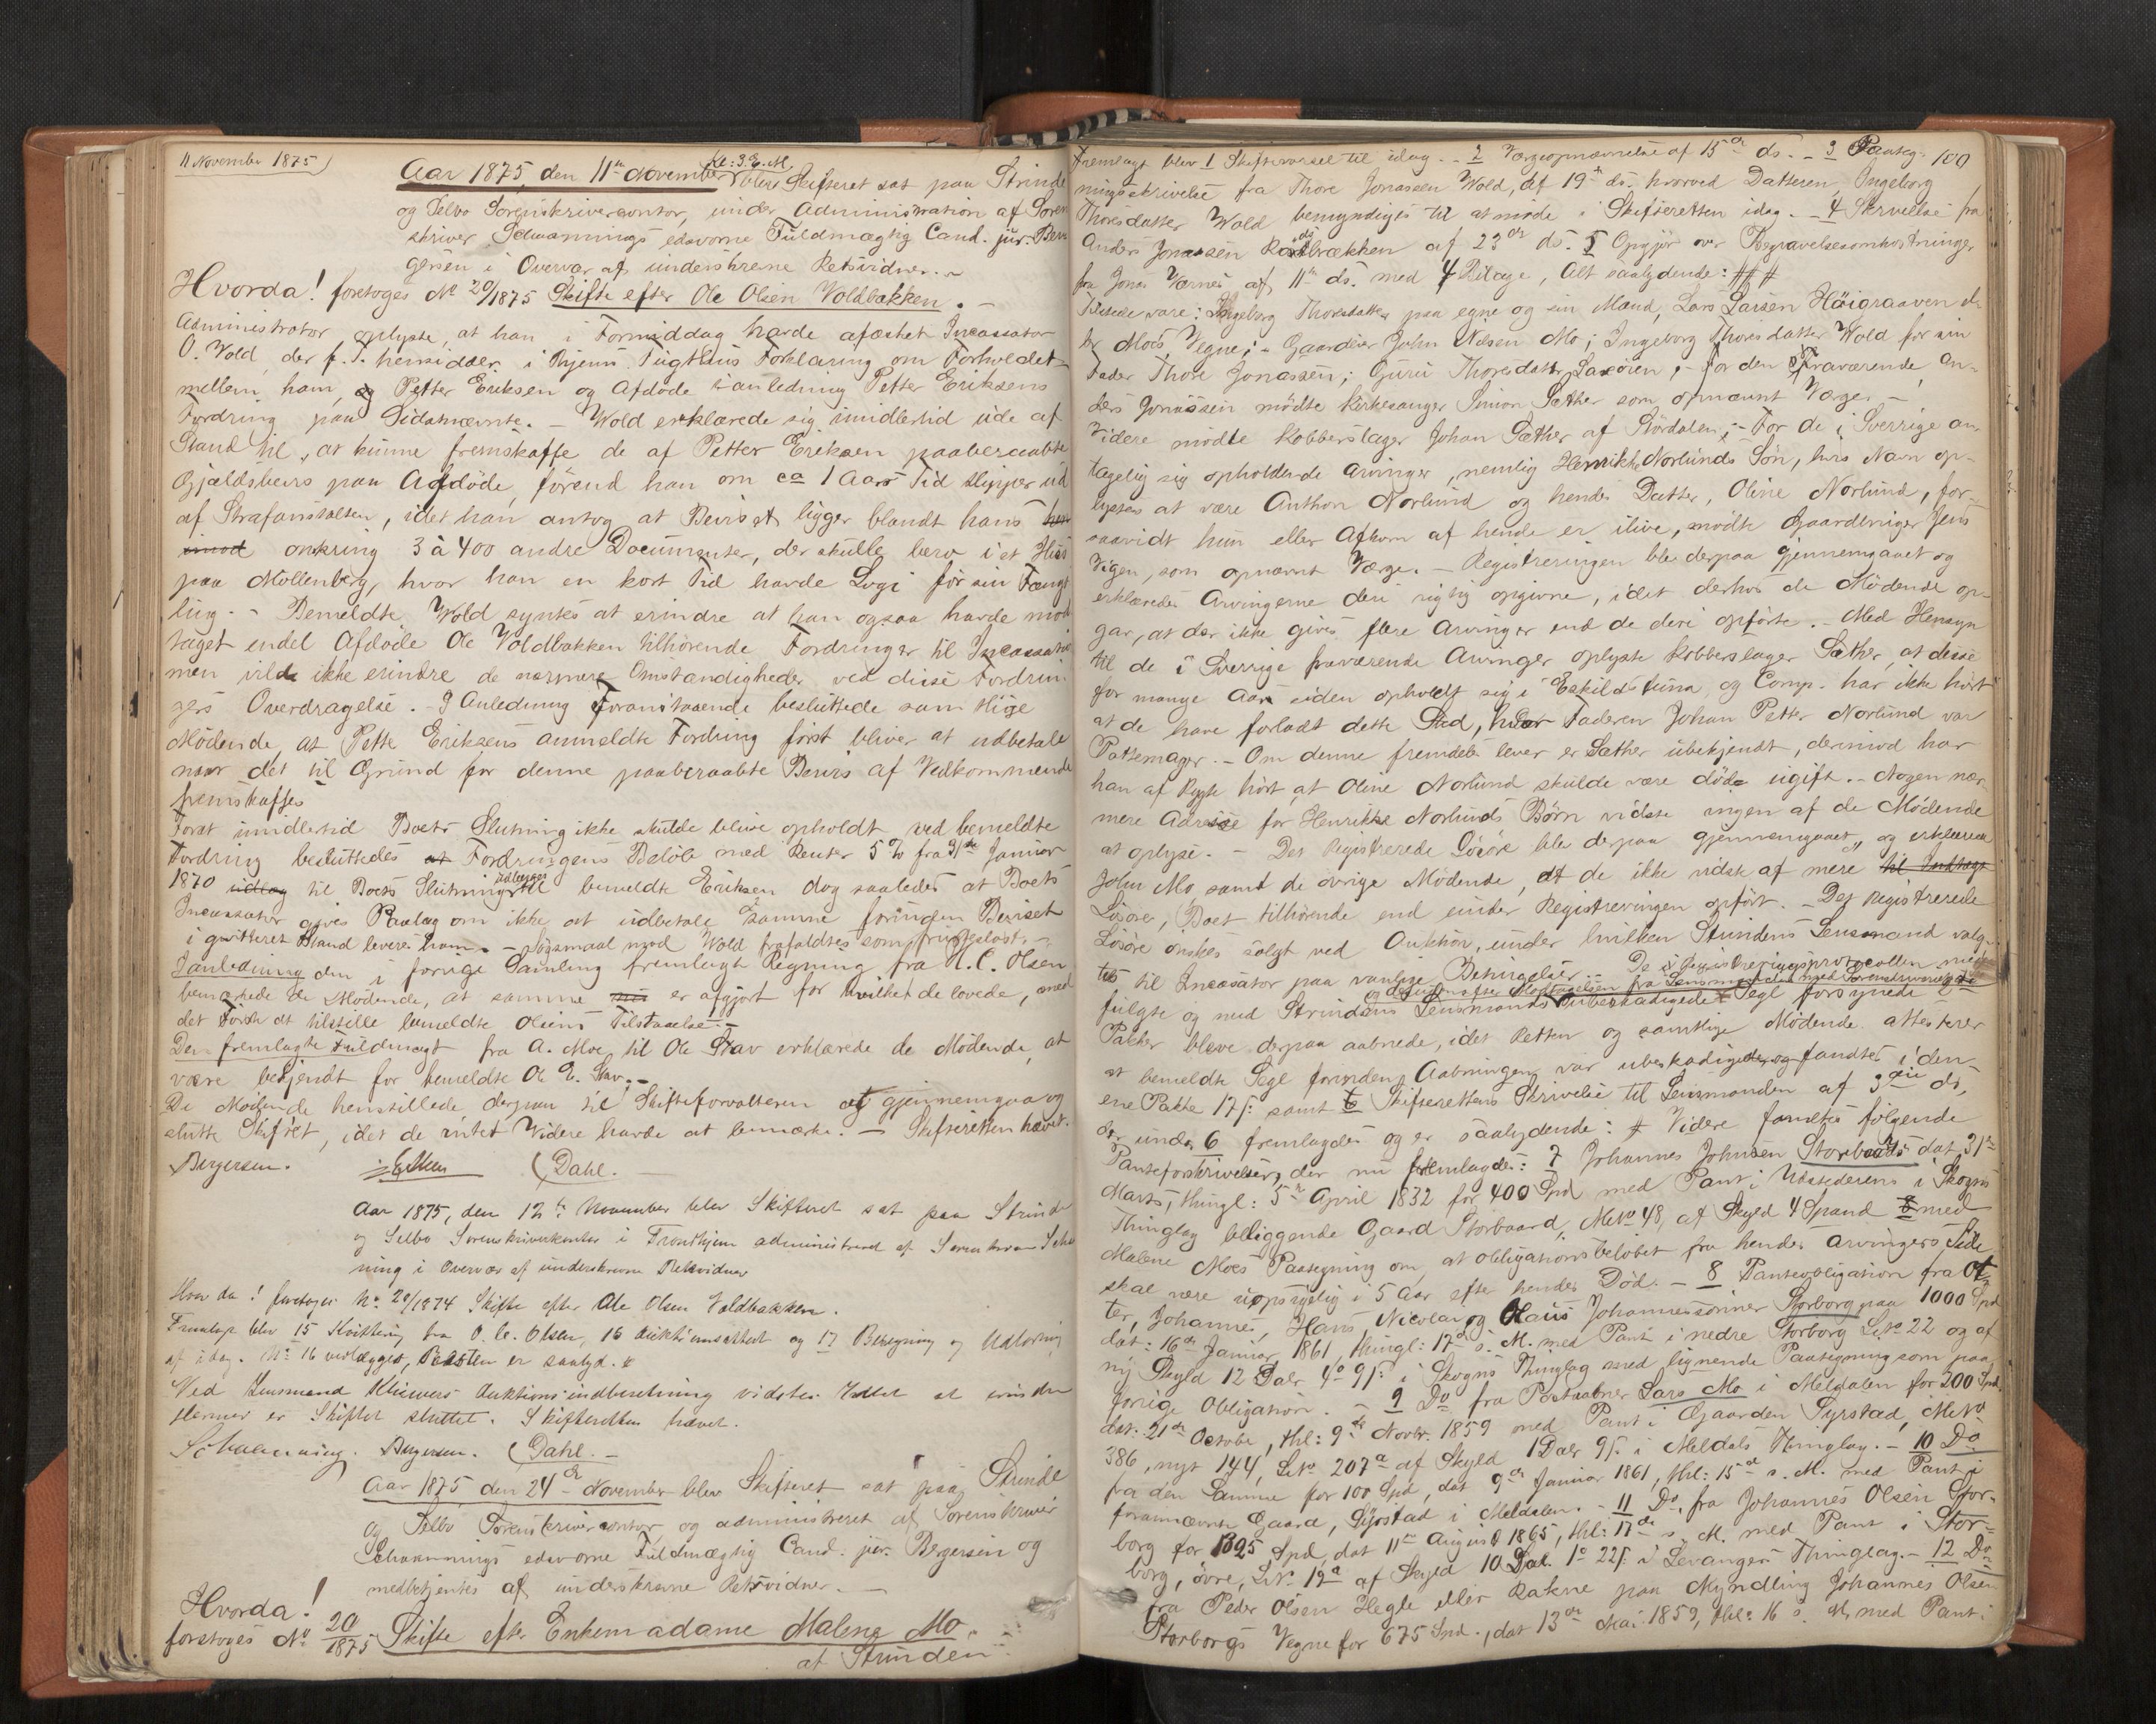 11 November 1875
Aar 1875, den 11te November Kl: 3 E. M. blev Skifteret sat paa Strinde
og Selbo Sorenskrivercontor, under Administration af Soren
skriver Schvannings edsvorne Fuldmægtig Cand. jur. Ber
gersen i Overvær af underskrevne Retsvidner. –
Hvorda! foretoges No 20/1875 Skifte efter Ole Olsen Voldbakken. –
Administrator oplyste, at han i Formiddag havde afæsket Incassator
O. Wold, der p. T. hensidder i Thjems Tugthus Forklaring om Forholdet
mellem ham, og Petter Eriksen og Afdøde i anledning Petter Eriksens
Fordring paa Sidstnævnte. – Wold erklærede sig imidlertid ude af
Stand til, at kunne fremskaffe de af Petter Eriksen paaberaabte
Gjældsbevis paa Afdøde, førend han om ca 1 Aars Tid slipper ud
af Strafanstalten, idet han antog at Beviset ligger blandt hans
omkring 3 à 400 andre Documenter, der skulle bero i et Huus
paa Møllenberg, hvor han en kort Tid havde Logi før sin Fængs
ling. – Bemeldte Wold syntes at erindre at han ogsaa havde mod
taget endel Afdøde Ole Voldbakken tilhørende Fordringer til Incassation
men vilde ikke erindre de nærmere Omstændigheder ved disse Fordrin
gers Overdragelse. – I Anledning Foranstaaende besluttede samtlige
Mødende, at Pette Eriksens anmeldte Fordring først bliver at udbetale
naar det til Grund for denne paaberaabte Bevis af Vedkommende
fremskaffes
Forat imidlertid Boets Slutning ikke skulde blive opholdt ved bemeldte
Fordring besluttedes at Fordringens Beløb med Renter 5 % fra 31te Januar
1870 udlag til Boets Slutning udlægges til bemeldte Eriksen dog saaledes at Boets
Incassator gives Paalæg om ikke at udbetale samme førinden Beviset
i qvitteret Stand leveres ham. – Søgsmaal mod Wold frafaldtes som frugtesløst. –
I anledning den i forrige Samling fremlagte Regning fra O. C. Olsen
bemærkede de Mødende, at samme er afgjort for hvilket de lovede, med
det Første at tilstille bemeldte Olsens Tilstaaelse. –
Den fremlagte Fuldmagt fra A. Moe til Ole Stav erklærede de Mødende, at
være bekjendt for bemeldte Ole E. Stav. –
De Mødende henstillede derpaa til Skifteforvalteren at gjennemgaa og
slutte Skiftet, idet de intet Videre havde at bemærke. – Skifteretten hævet.
Bergersen. Dahl. –
Aar 1875, den 12te November blev Skifteret sat paa Strinde
og Selbo Sorenskriverkontor i Trondhjem administreret af Sorenskriver Schva
ning i Overvær af underskrevne Retsvidner
Hvor da! foretoges No 20/1874 Skifte efter Ole Olsen Voldbakken.
Fremlagt blev 15 Kvittering fra O. C. Olsen, 16 Auktionsattest og 17 Beregning og Udlodning
af idag. No 16 vedlægges, Resten er saalyd. #
Ved Lensmand Kluwers Auktionsindberetning vidstes Intet at erindre
Hermed er Skiftet sluttet. Skifteretten hævet.
Schvanning. Bergersen. Dahl. –
Aar 1875 den 24de November blev Skifteret sat paa Strinde
og Selbo Sorenskrivercontor og administreret af Sorenskriver
Schvannings edsvorne Fuldmægtig Cand. jur. Bergersen og
medbetjentes af underskrevne Retsvidner. –
Hvorda!
foretoges No 20/1875 Skifte efter Enkemadame Malene Mo
af Strinden
100
Fremlagt blev 1 Skiftevarsel til idag. – 2 Værgeopnævnelse af 15de ds. – 3 Paateg-
ningsskrivelse fra Thore Jonassen Wold, af 19de ds. hvorved Datteren Ingeborg
Thoresdatter Wold bemyndiges til at møde i Skifteretten idag. – 4 Skrivelse fra
Anders Jonassen af 23de ds. 5 Opgjør over Begravelsesomkostninger
fra Jonas Værnes af 11te ds. med 4 Bilage, Alt saalydende: ###
Tilstede vare: Ingeborg Thoresdatter paa egne og sin Mand, Lars Larsen Høigraaven
Moes Vegne; – Gaardeier John Nilsen Mo; Ingeborg Thoresdatter Wold for sin
Fader Thore Jonassen; Guru Thoresdatter; – for den Fraværende An-
ders Jonassen mødte Kirkesanger Simon Sæther som opnævnt Værge. –
Videre mødte Kobberslager Johan Sæther af Størdalen; – For de i Sverrige an-
tagelig sig opholdende Arvinger, nemlig Henrikke Norlunds Søn, hvis Navn op-
lystes at være Anthon Norlund og hendes Datter, Oline Norlund, for-
saavidt hun eller Afkom af hende er ilive, mødte Gaardbruger Jens
Vigen, som opnævnt Værge. – Registreringen blev derpaa gjennemgaaet og
erklæredes Arvingerne deri rigtig opgivne, idet derhos de Mødende op-
gav, at der ikke gives flere Arvinger end de deri opførte. – Med Hensyn
til de i Sverrige fraværende Arvinger oplyste Kobberslager Sæther, at disse
for mange Aar siden opholdt sig i Eskildstuna, og Comp. har ikke hørt
at de have forladt dette Sted, hvor Faderen Johan Petter Norlund var
Pottemager. – Om denne fremdeles lever er Sæther ubekjendt, derimod har
han af Rygte hørt at Oline Norlund skulde være død ugift. – Nogen nær-
mere Adresse for Henrikke Norlunds Børn vidste ingen af de Mødende
at oplyse. – Det Registrerede Løsøre blev derpaa gjennemgaaet, og erklærede
John Mo samt de øvrige Mødende, at de ikke vidste af mere til Indtægt
Løsøre, Boet tilhørende end under Registreringen opført. – Det Registrerede
Løsøre ønskes solgt ved Auktion, under hvilken Strindens Lensmand valg-
tes til Incassator paa vanlige Betingelser. – De i Registreringsprotocollen med-
fulgte og med Strindens Lensmands ubeskadigede Segl forsynede 2
Pakker bleve derpaa aabnede, idet Retten og samtlige Mødende attesterer
at bemeldte Segl forinden Aabningen var ubeskadigede, og fandtes i den
ene Pakke 17 s: samt Skifterettens Skrivelse til Lensmanden af 3die ds,
der under 6 fremlagdes og er saalydende: # Videre fandtes følgende
Panteforskrivelser, der nu fremlagdes: 7 Johannes Johnsen Storborgs dat. 31te
Marts, thingl: 5te April 1832 for 400 Spd med Pant i Udstederens i Skogns
Thinglag beliggende Gaard Storbaard, Mtr No 48, af Skyld 4 Spand med
Malene Moes Paategning om, at Obligationsbeløbet fra hendes Arvingers Side
skal være uopsigelig i 5 Aar efter hendes Død. – 8 Panteobligation fra Ot-
ter, Johannes, Hans, Nicolai og Claus Johannessønner Storborg paa 1000 Spd
dat: 16de Januar 1861, thingl: 17de s. M. med Pant i nedre Storborg Løbe No 22 og af
ny Skyld 12 Daler 4 o 9 s: i Skogns Thinglag med lignende Paategning som paa
forrige Obligation. – 9 Do fra Postaabner Lars Mo i Meldalen for 200 Spd.
dat. 21de October, thl: 9de Novbr. 1859 med Pant i Gaarden Syrstad, Mtr No
386, nyt 144, Løbe No 207a af Skyld 1 Daler 9 s: i Meldals Thinglag. – 10 Do
fra den Samme for 100 Spd, dat 9de Januar 1861, thl: 15de s. M. med Pant i
forannævnte Gaard, Syrstad i Meldalen. – 11 Do fra Johannes Olsen Stor-
borg for 1325 Spd, dat 11te August 1865, thl: 17de s. M. med Pant i Stor-
borg, øvre, Løbe No 19a af Skyld 10 Dal. 1 o 22 s: i Levangers Thinglag. – 12 Do
fra Peder Olsen Hegle eller Rakne paa Myndling Johannes Olsen
Storborgs Vegne for 675 Spd., dat 13de Mai 1859, thl: 16 s. M. med Pant i